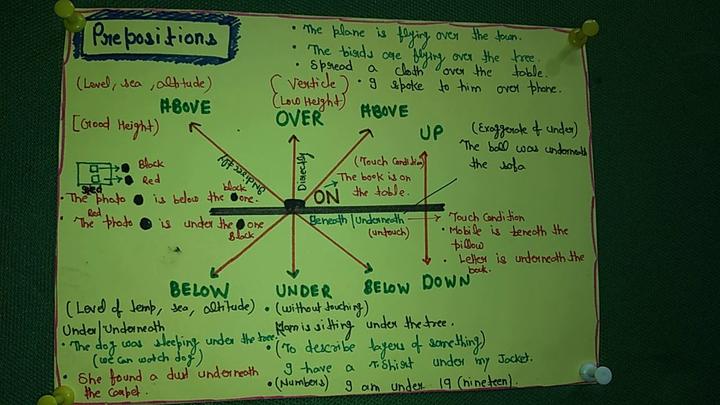 Prepositions
• The plane is flying over the town.
• The birds are flying over the tree.
• Spread a cloth over the table.
• I spoke to him over phone.
(Level, sea, altitude)
ABOVE
[Good Height)
(Verticle)
(Low Height)
OVER
ABOVE
UP
(Exaggerate of under)
The ball was underneath
the sofa
Indirectly
Directly
(Touch Condition)
ON
The book is on
the table.
Black
Red
• The photo is below the black one.
Red
• The photo is under the one
Black
Beneath/Underneath
(untouch)
Touch Condition
• Mobile is beneath the
pillow
• Letter is underneath the
book.
BELOW
UNDER
BELOW
DOWN
(Level of temp, sea, altitude)
Under/Underneath
• The dog was sleeping under the tree.
(we can watch dog)
• She found a dust underneath
the carpet.
• (without touching)
Mam is sitting under the tree.
• (To describe layers of something)
I have a T-Shirt under my Jacket.
• (Numbers) I am under 19 (nineteen).